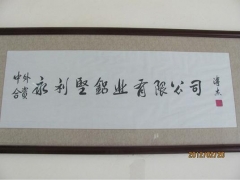 中外合资
永利坚铝业有限公司
溥杰
2012/02/23